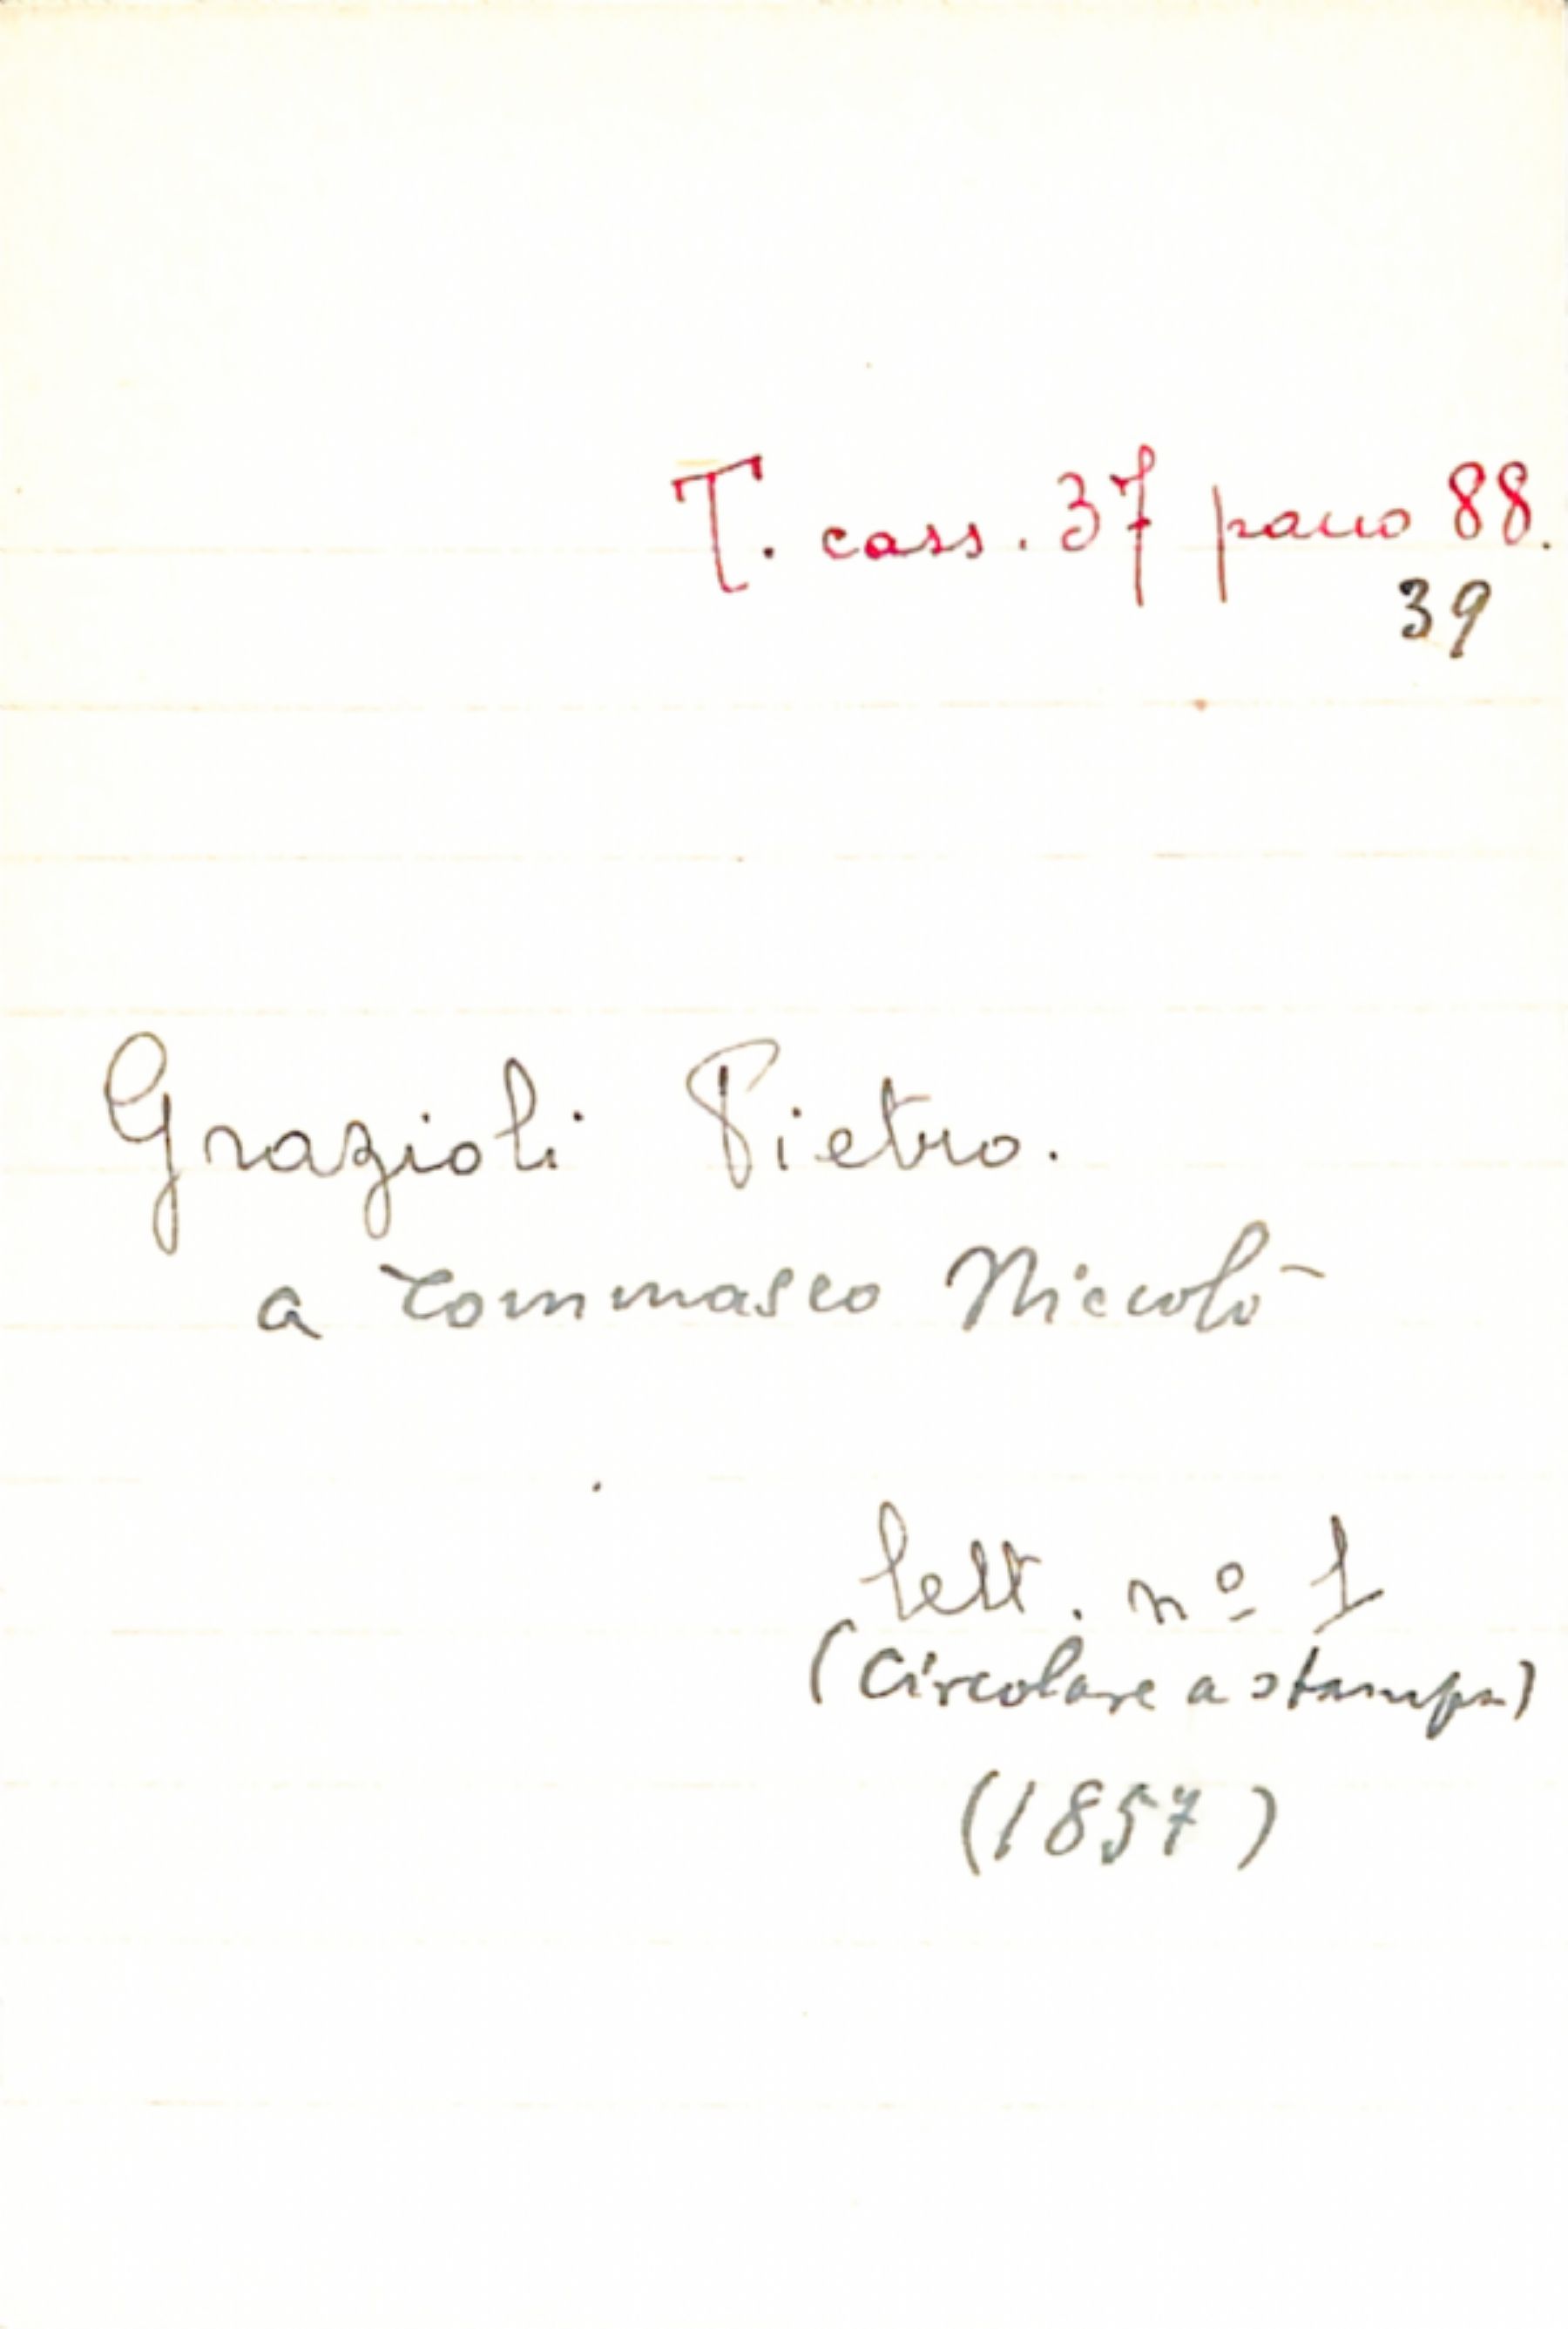 T. cass. 37 pacco 88.
39
Grazioli Pietro.
a Tommaseo Niccolò
lett. nº 1
(Circolare a stampa)
(1857)